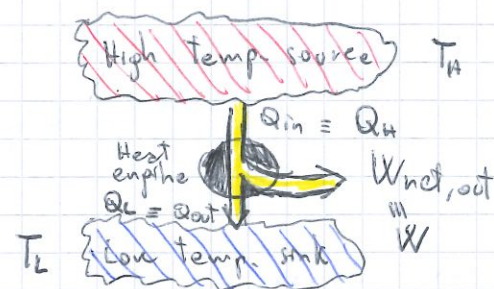 High temp. source
T_H
Q_in ≡ Q_H
Heat
engine
W_net,out
Q_L ≡ Q_out
≡
W
T_L
Low temp. sink